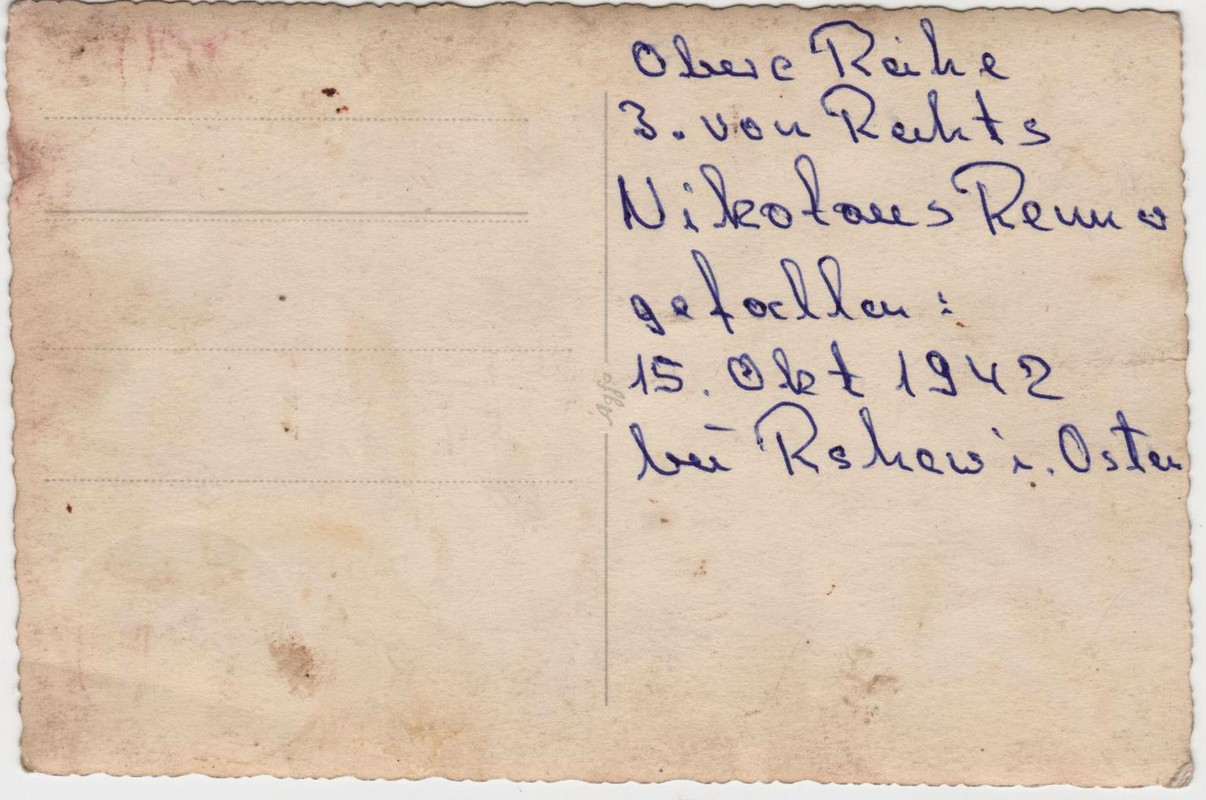 Obere Reihe
3. von Rechts
Nikolaus
gefallen:
15. Okt 1942
bei Rshew i. Osten
Agfa